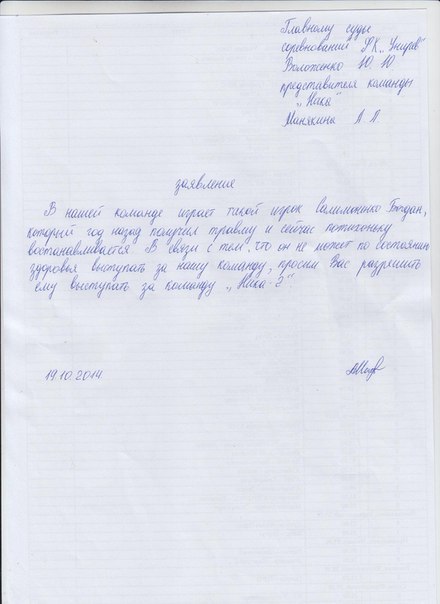 Главному судье
соревнований ФК „Универ"
Воложенко Ю. Ю
представителя команды
„Ника"
Манякина А. А.
заявление
В нашей команде играет такой игрок Салимоненко Богдан,
который год назад получил травму и сейчас потихоньку
востанавливается. В связи с тем, что он не может по состоянию
здоровья выступать за нашу команду, просим Вас разрешить
ему выступать за команду „Ника-2"
19.10.2014